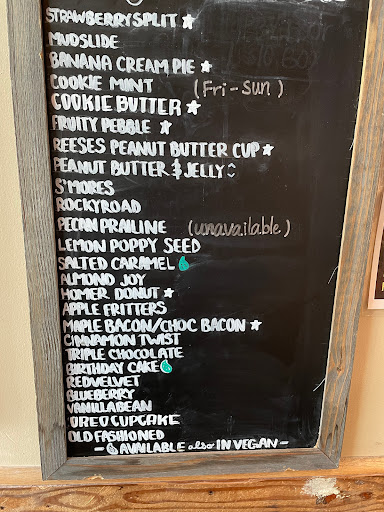 STRAWBERRY SPLIT ★
MUDSLIDE
BANANA CREAM PIE ★
COOKIE MINT (Fri-Sun)
COOKIE BUTTER ★
FRUITY PEBBLE ★
REESES PEANUT BUTTER CUP ★
PEANUT BUTTER & JELLY
S'MORES
ROCKYROAD
PECAN PRALINE (unavailable)
LEMON POPPY SEED
SALTED CARAMEL
ALMOND JOY
HOMER DONUT ★
APPLE FRITTERS
MAPLE BACON/CHOC BACON ★
CINNAMON TWIST
TRIPLE CHOCOLATE
BIRTHDAY CAKE
REDVELVET
BLUEBERRY
VANILLABEAN
OREO CUPCAKE
OLD FASHIONED
- AVAILABLE also IN VEGAN -